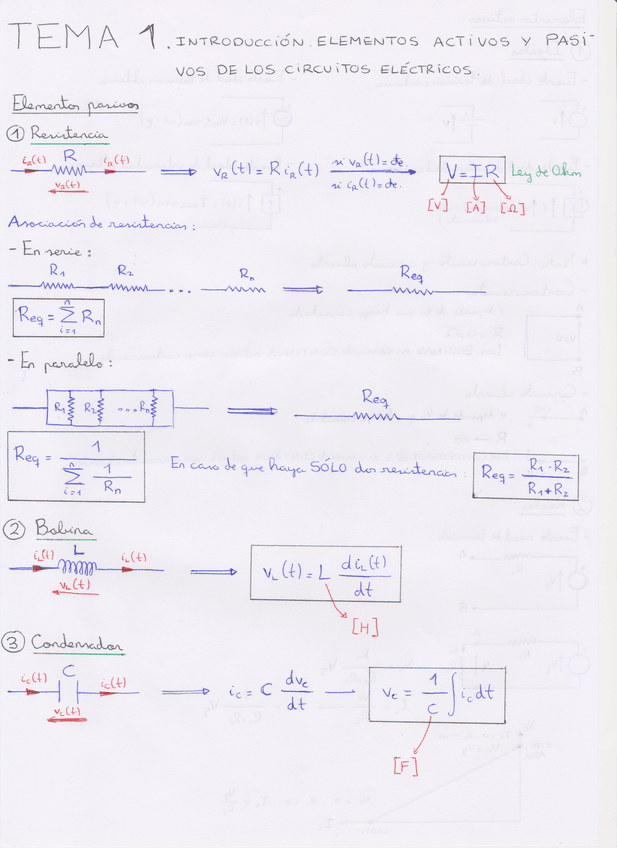 TEMA 1. INTRODUCCIÓN. ELEMENTOS ACTIVOS Y PASI-
VOS DE LOS CIRCUITOS ELÉCTRICOS.
Elementos pasivos
① Resistencia
i_R(t) R i_R(t)
v_R(t)
⇒ v_R(t) = R i_R(t) si v_R(t) = cte. → V = I R Ley de Ohm
si i_R(t) = cte.
[V] [A] [Ω]
Asociación de resistencias:
- En serie:
R₁ R₂ ... Rₙ ⇒ Req
Req = Σ_{i=1}^{n} Rₙ
- En paralelo:
R₁ R₂ ... Rₙ ⇒ Req
Req = 1 / (Σ_{i=1}^{n} 1/Rₙ) En caso de que haya SÓLO dos resistencias: Req = (R₁ · R₂) / (R₁ + R₂)
② Bobina
i_L(t) L i_L(t)
v_L(t)
⇒ v_L(t) = L d i_L(t) / dt
[H]
③ Condensador
i_C(t) C i_C(t)
v_C(t)
⇒ i_C = C dv_C / dt — v_C = 1/C ∫ i_C dt
[F]